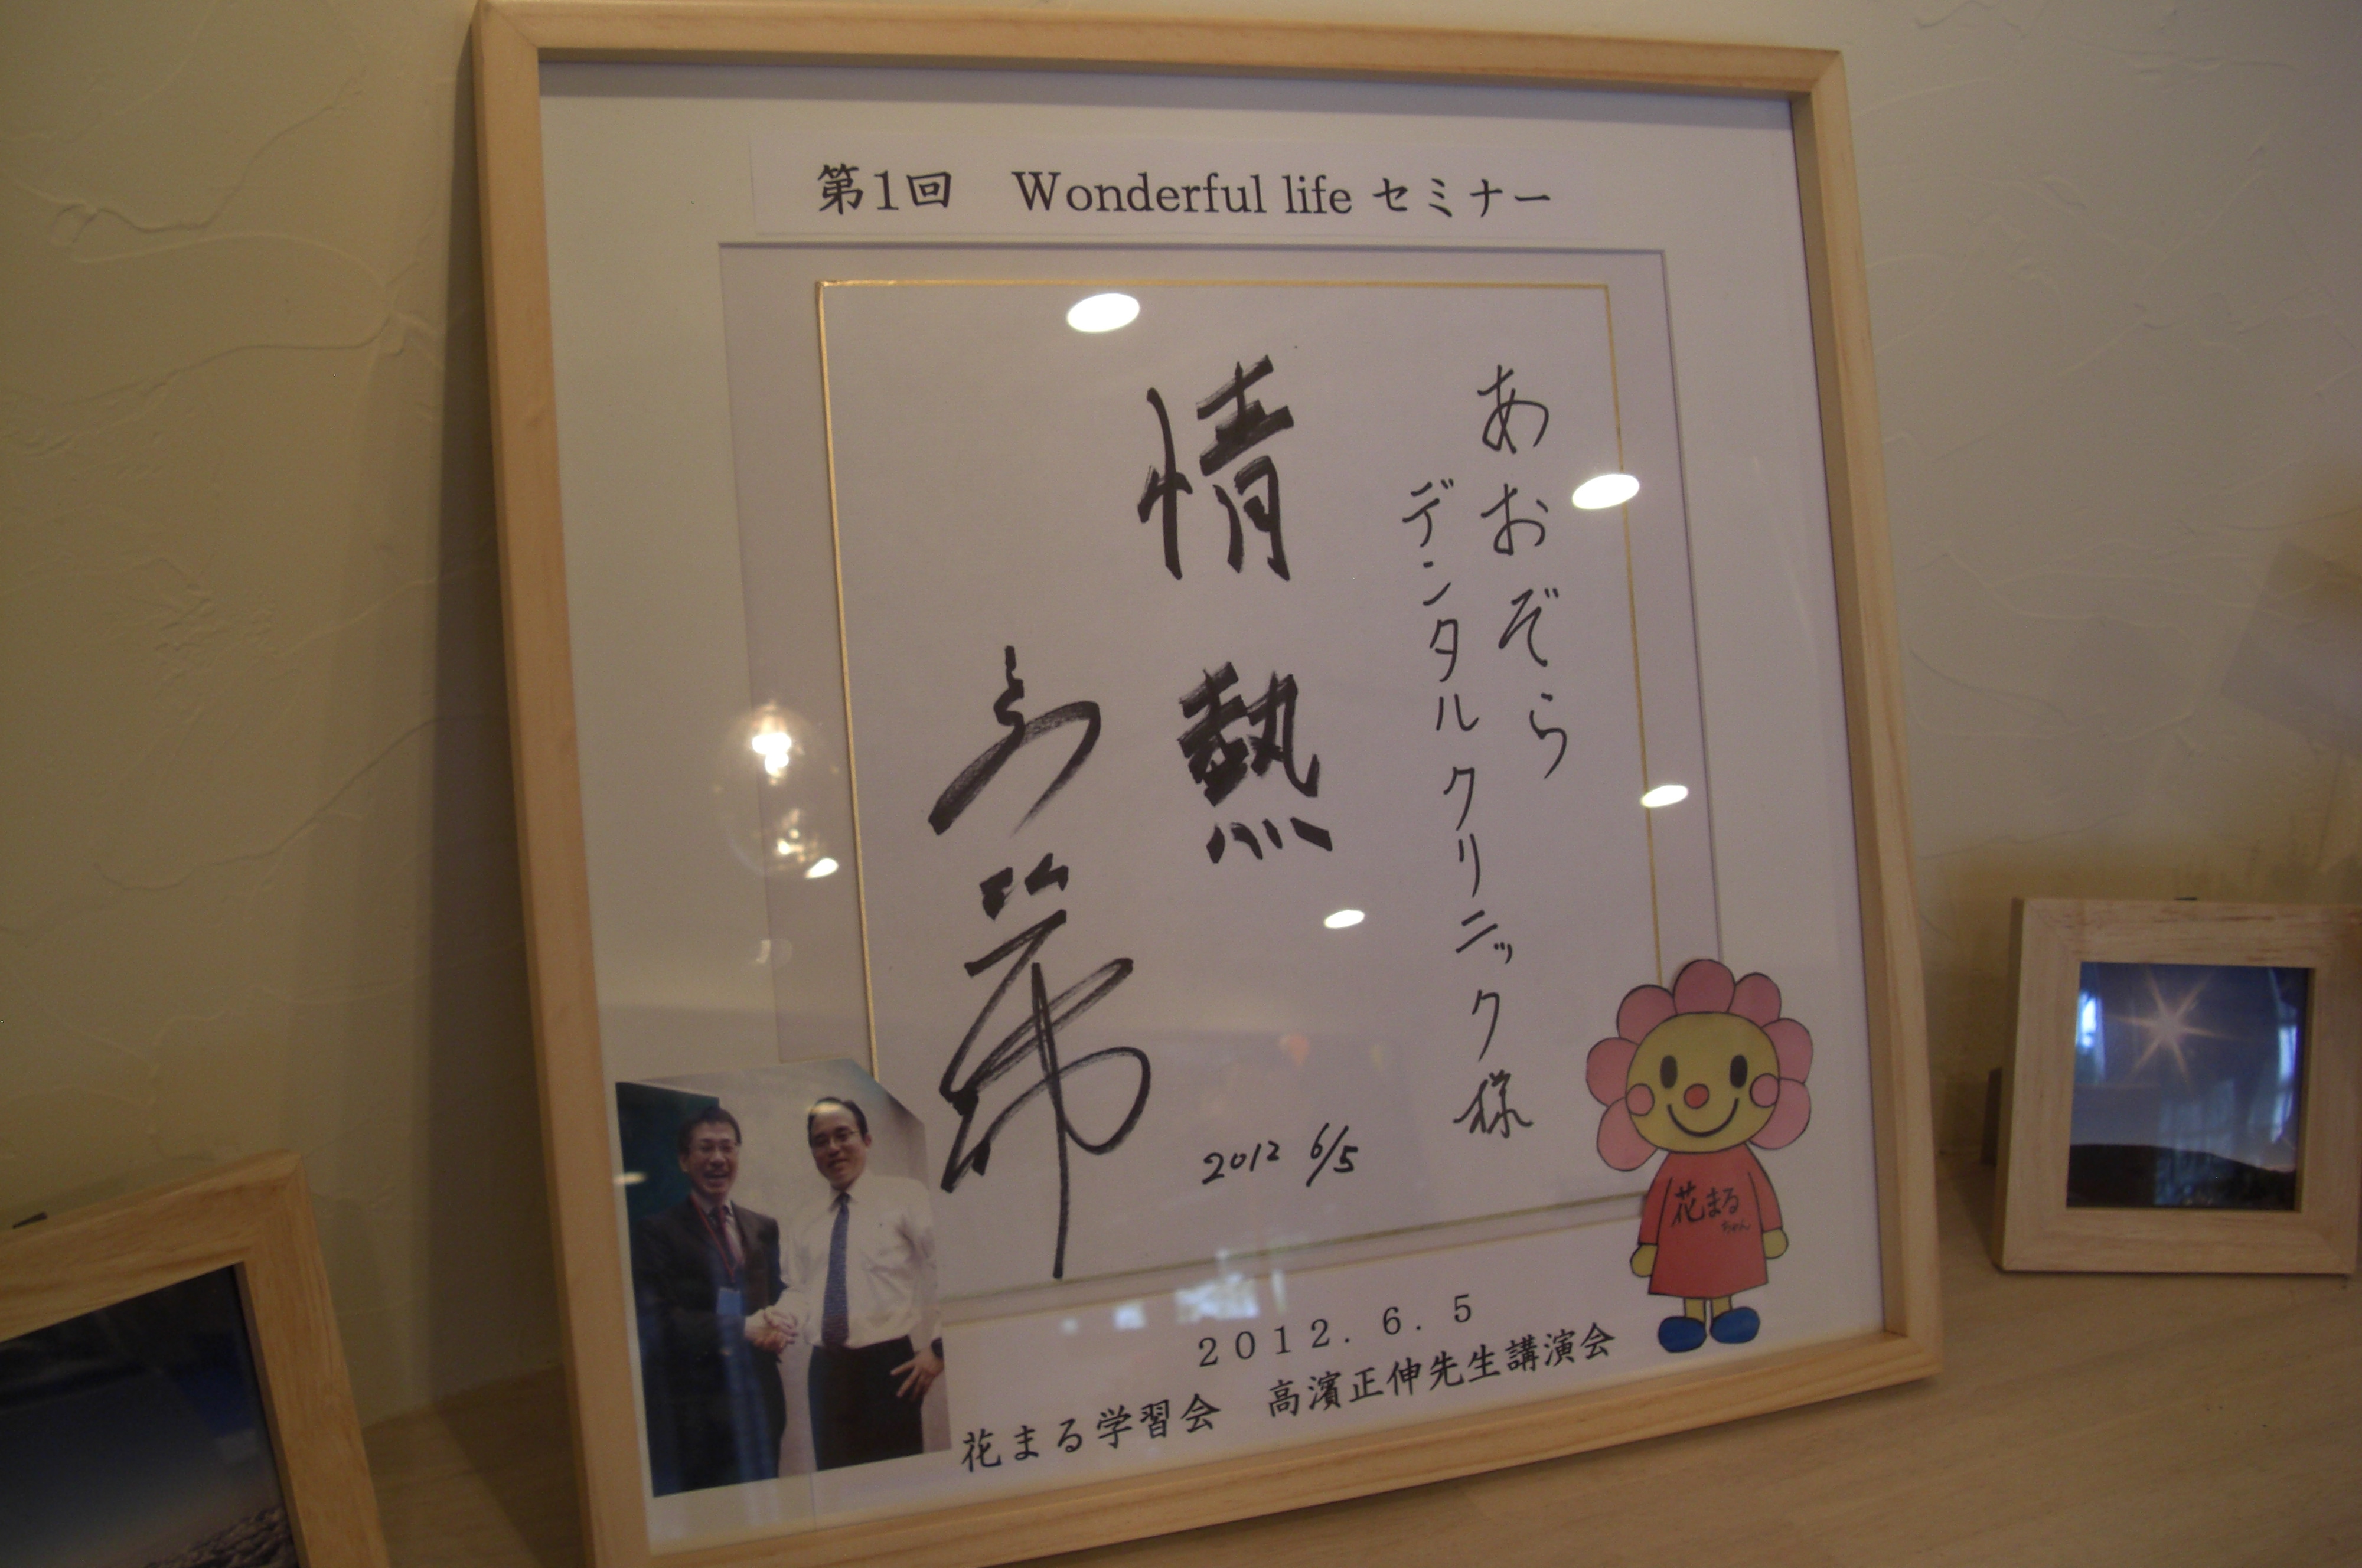 第1回　Wonderful life セミナー
あおぞら
デンタルクリニック様
情熱
2012 6/5
花まる
ちゃん
2012.6.5
花まる学習会　高濱正伸先生講演会